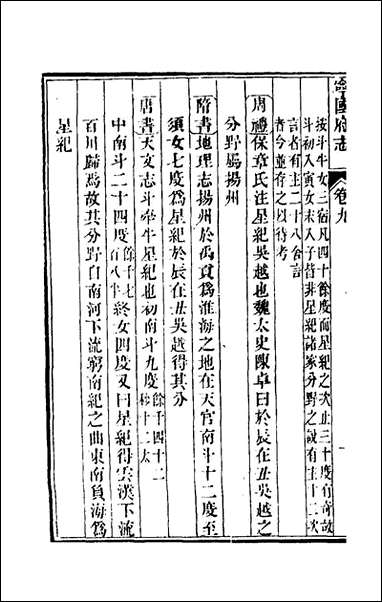 寧國府志 卷九
按斗牛女三宿凡四十餘度而星紀之次止三十度有奇故
斗初入寅女末入子皆非星紀諸家分野之說有主十二次
言者有主二十八舍言
者今並存之以待考
周禮保章氏注星紀吳越也魏太史陳卓曰於辰在丑吳越之
分野屬揚州
隋書地理志揚州於禹貢為淮海之地在天官南斗十二度至
須女七度為星紀於辰在丑吳越得其分
唐書天文志斗牽牛星紀也初南斗九度餘千四十二秒十二太
中南斗二十四度終女四度又曰星紀得雲漢下流
百川歸焉故其分野自南河下流窮南紀之曲東南負海為
星紀